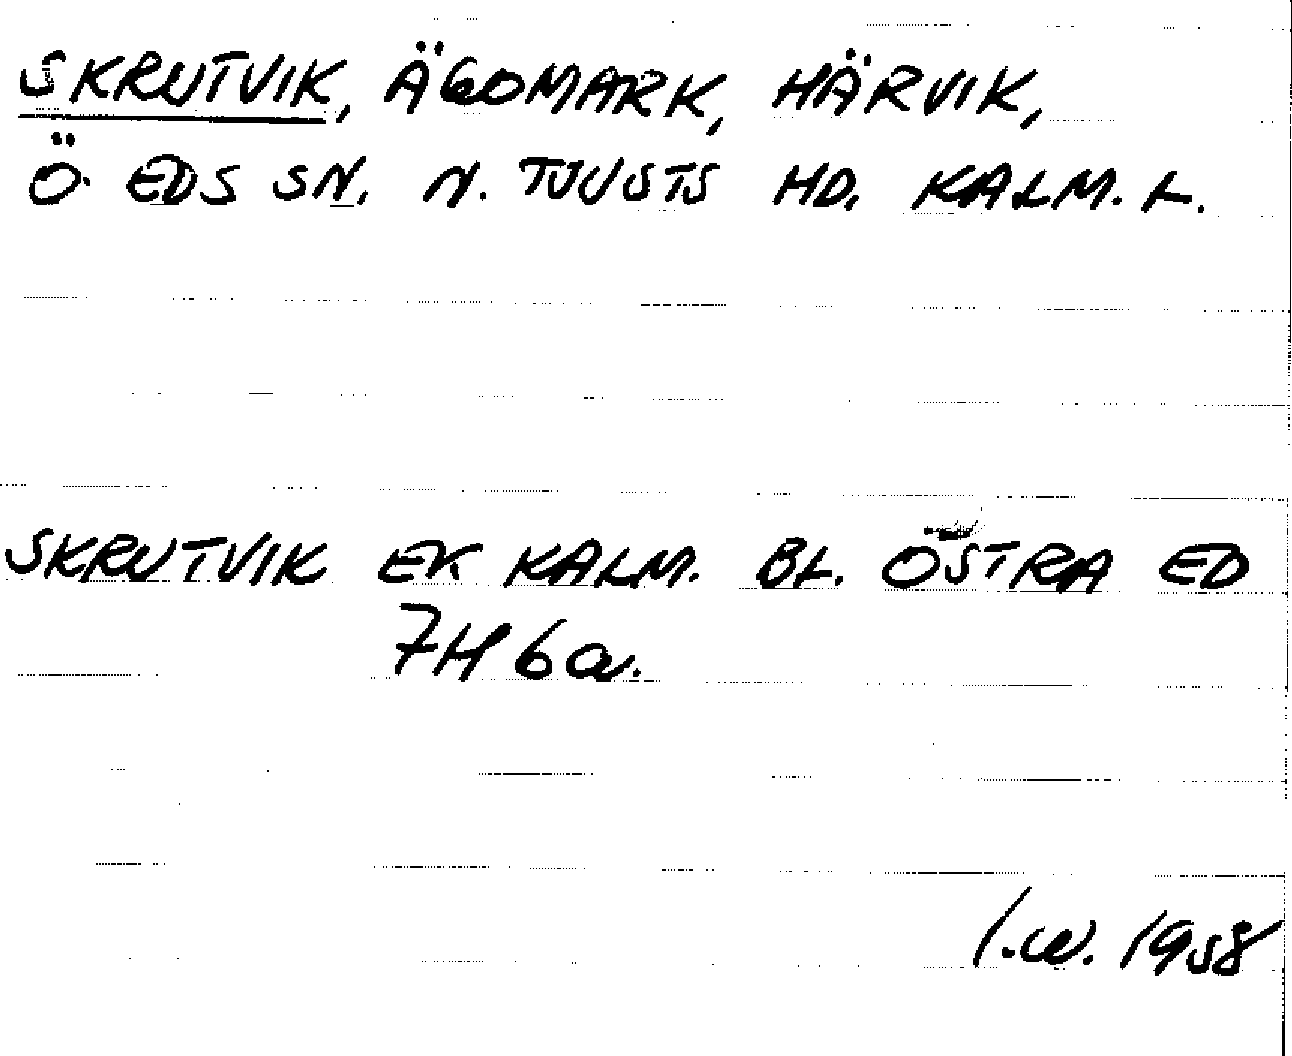 SKRUTVIK, ÄGOMARK, HÄRVIK,
Ö. EDS SN. N. TJUSTS HD. KALM. L.
SKRUTVIK EK KALM. BL. ÖSTRA ED
7H 6a.
I.W. 1958